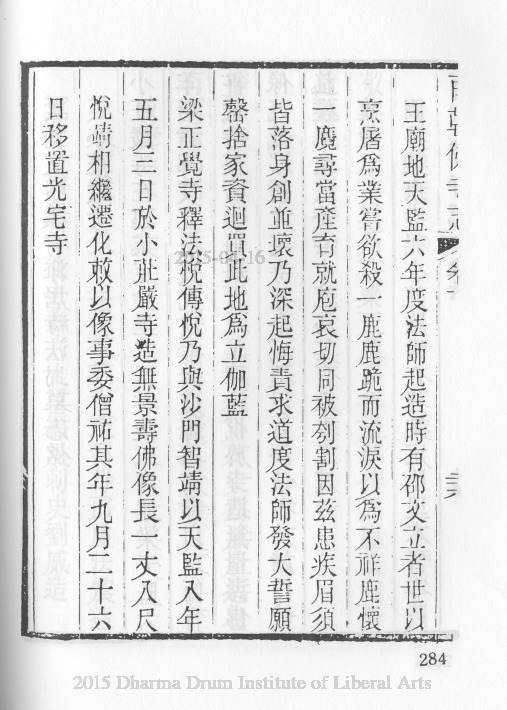 南朝佛寺志
王廟地天監六年度法師起造時有邵文立者世以
烹屠為業嘗欲殺一鹿鹿跪而流淚以為不祥鹿懷
一麑尋當產育就庖哀切同被刳割因茲患疾眉須
皆落身創並壞乃深起悔責求道度法師發大誓願
罄捨家資迴買此地為立伽藍
梁正覺寺釋法悅傳悅乃與沙門智靖以天監八年
五月三日於小莊嚴寺造無量壽佛像長一丈八尺
悅靖相繼遷化敕以像事委僧祐其年九月二十六
日移置光宅寺
284
2015-04-16
2015 Dharma Drum Institute of Liberal Arts